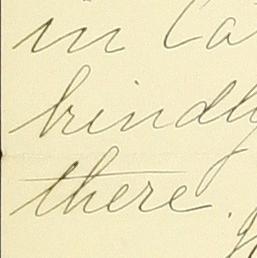 in Ca
kindly
there.